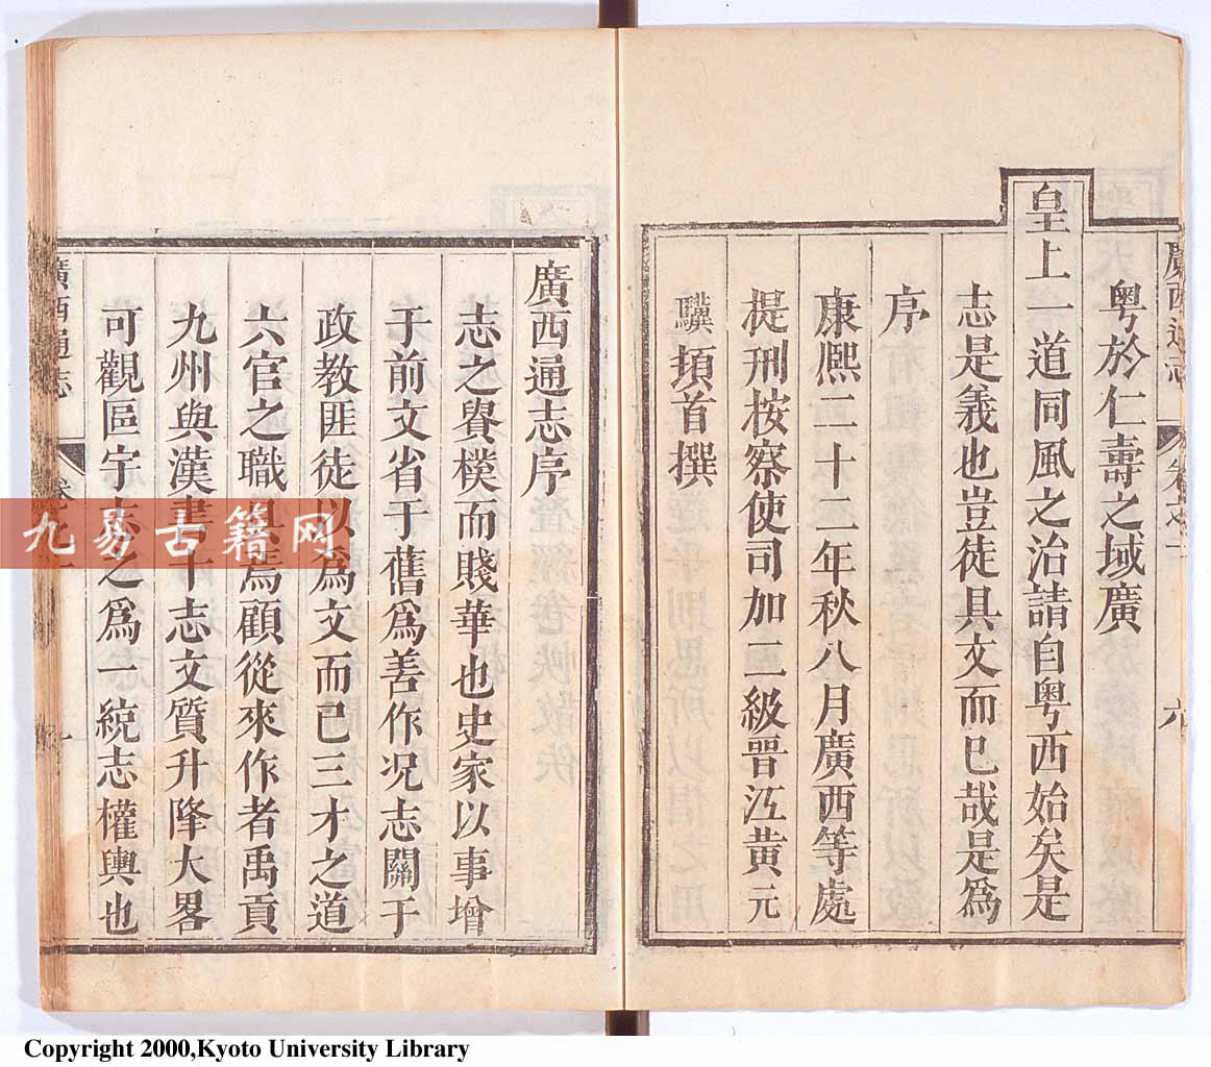 廣西通志
卷之一
六
粤於仁壽之域廣
皇上一道同風之治請自粤西始矣是
志是義也豈徒具文而已哉是爲
序
康熙二十二年秋八月廣西等處
提刑按察使司加二級晉江黄元
驥頓首撰
廣西通志序
志之貴樸而賤華也史家以事增
于前文省于舊爲善作况志關于
政教匪徒以爲文而已三才之道
六官之職具焉顧從來作者禹貢
九州與漢書十志文質升降大畧
可觀區宇志之爲一統志權輿也
廣西通志
卷之一
一
九易古籍网
Copyright 2000,Kyoto University Library